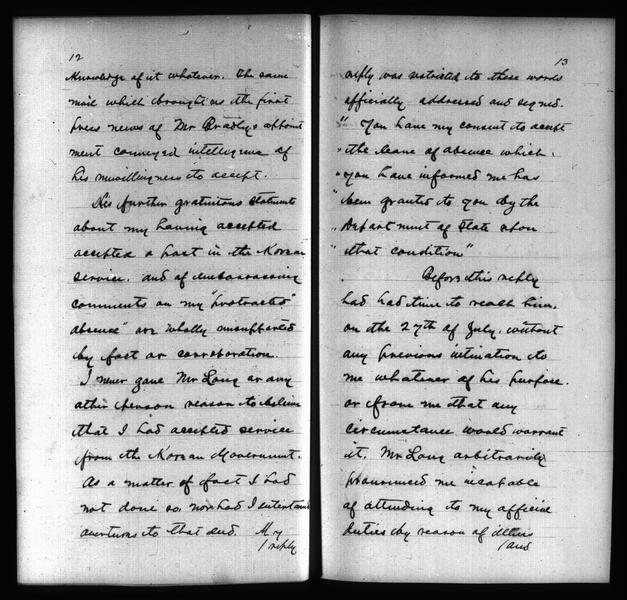 12
Knowledge of it whatever. The same
mail which brought us the first
press news of Mr Bradlys appoint
ment conveyed intelligence of
his unwillingness to accept.
His further gratuitous statements
about my having accepted
accepted a post in the Korean
service, and of embarrassing
comments on my "protracted
absence" are wholly unsupported
by fact or corroboration.
I never gave Mr Long or any
other person reason to believe
that I had accepted service
from the Korean Government.
As a matter of fact I had
not done so, nor had I entertained
overtures to that end. My
/ reply
13
reply was restricted to these words
officially addressed and signed.
"You have my consent to accept
"the leave of absence which
"you have informed me has
"been granted to you by the
"Department of State upon
"that condition"
Before this reply
had had time to reach him,
on the 27th of July, without
any previous intimation to
me whatever of his purpose.
or from me that any
circumstance would warrant
it, Mr Long arbitrarily
pronounced me incapable
of attending to my official
duties by reason of illness
/ and